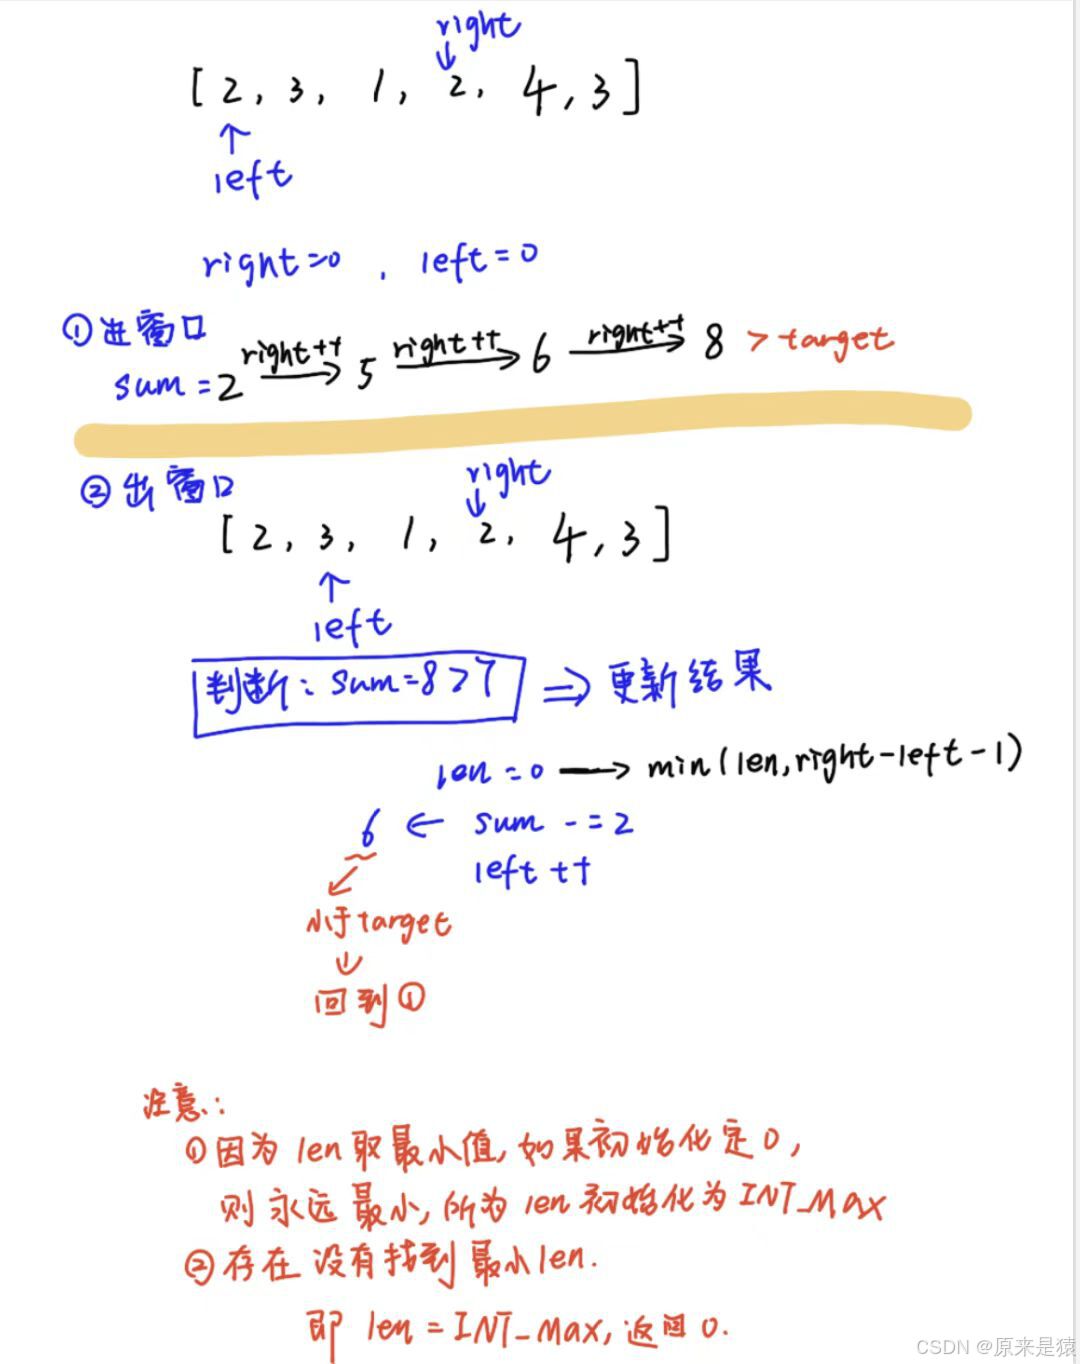 right
[2, 3, 1, 2, 4, 3]
left
right=0 , left=0
①进窗口
sum=2 right++ 5 right++ 6 right++ 8 >target
②出窗口
right
[2, 3, 1, 2, 4, 3]
left
判断: sum=8>7 ⇒ 更新结果
len=0 → min(len,right-left-1)
6 ← sum -=2
left++
小于target
回到①
注意:
①因为len取最小值,如果初始化定0,
则永远最小,所为len初始化为INT_MAX
②存在没有找到最小len.
即len=INT_MAX,返回0.
CSDN @原来是猿